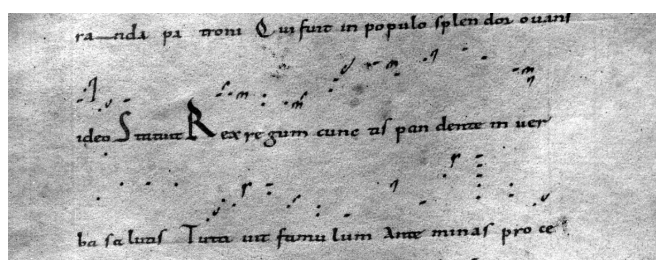 ra—nda pa troni Qui fuit in populo splen dor ouans
ideo Statuit Rex re gum cunc tis pan dente in uer
ba salutis Tuta uit famu lum Ante minas pro ce